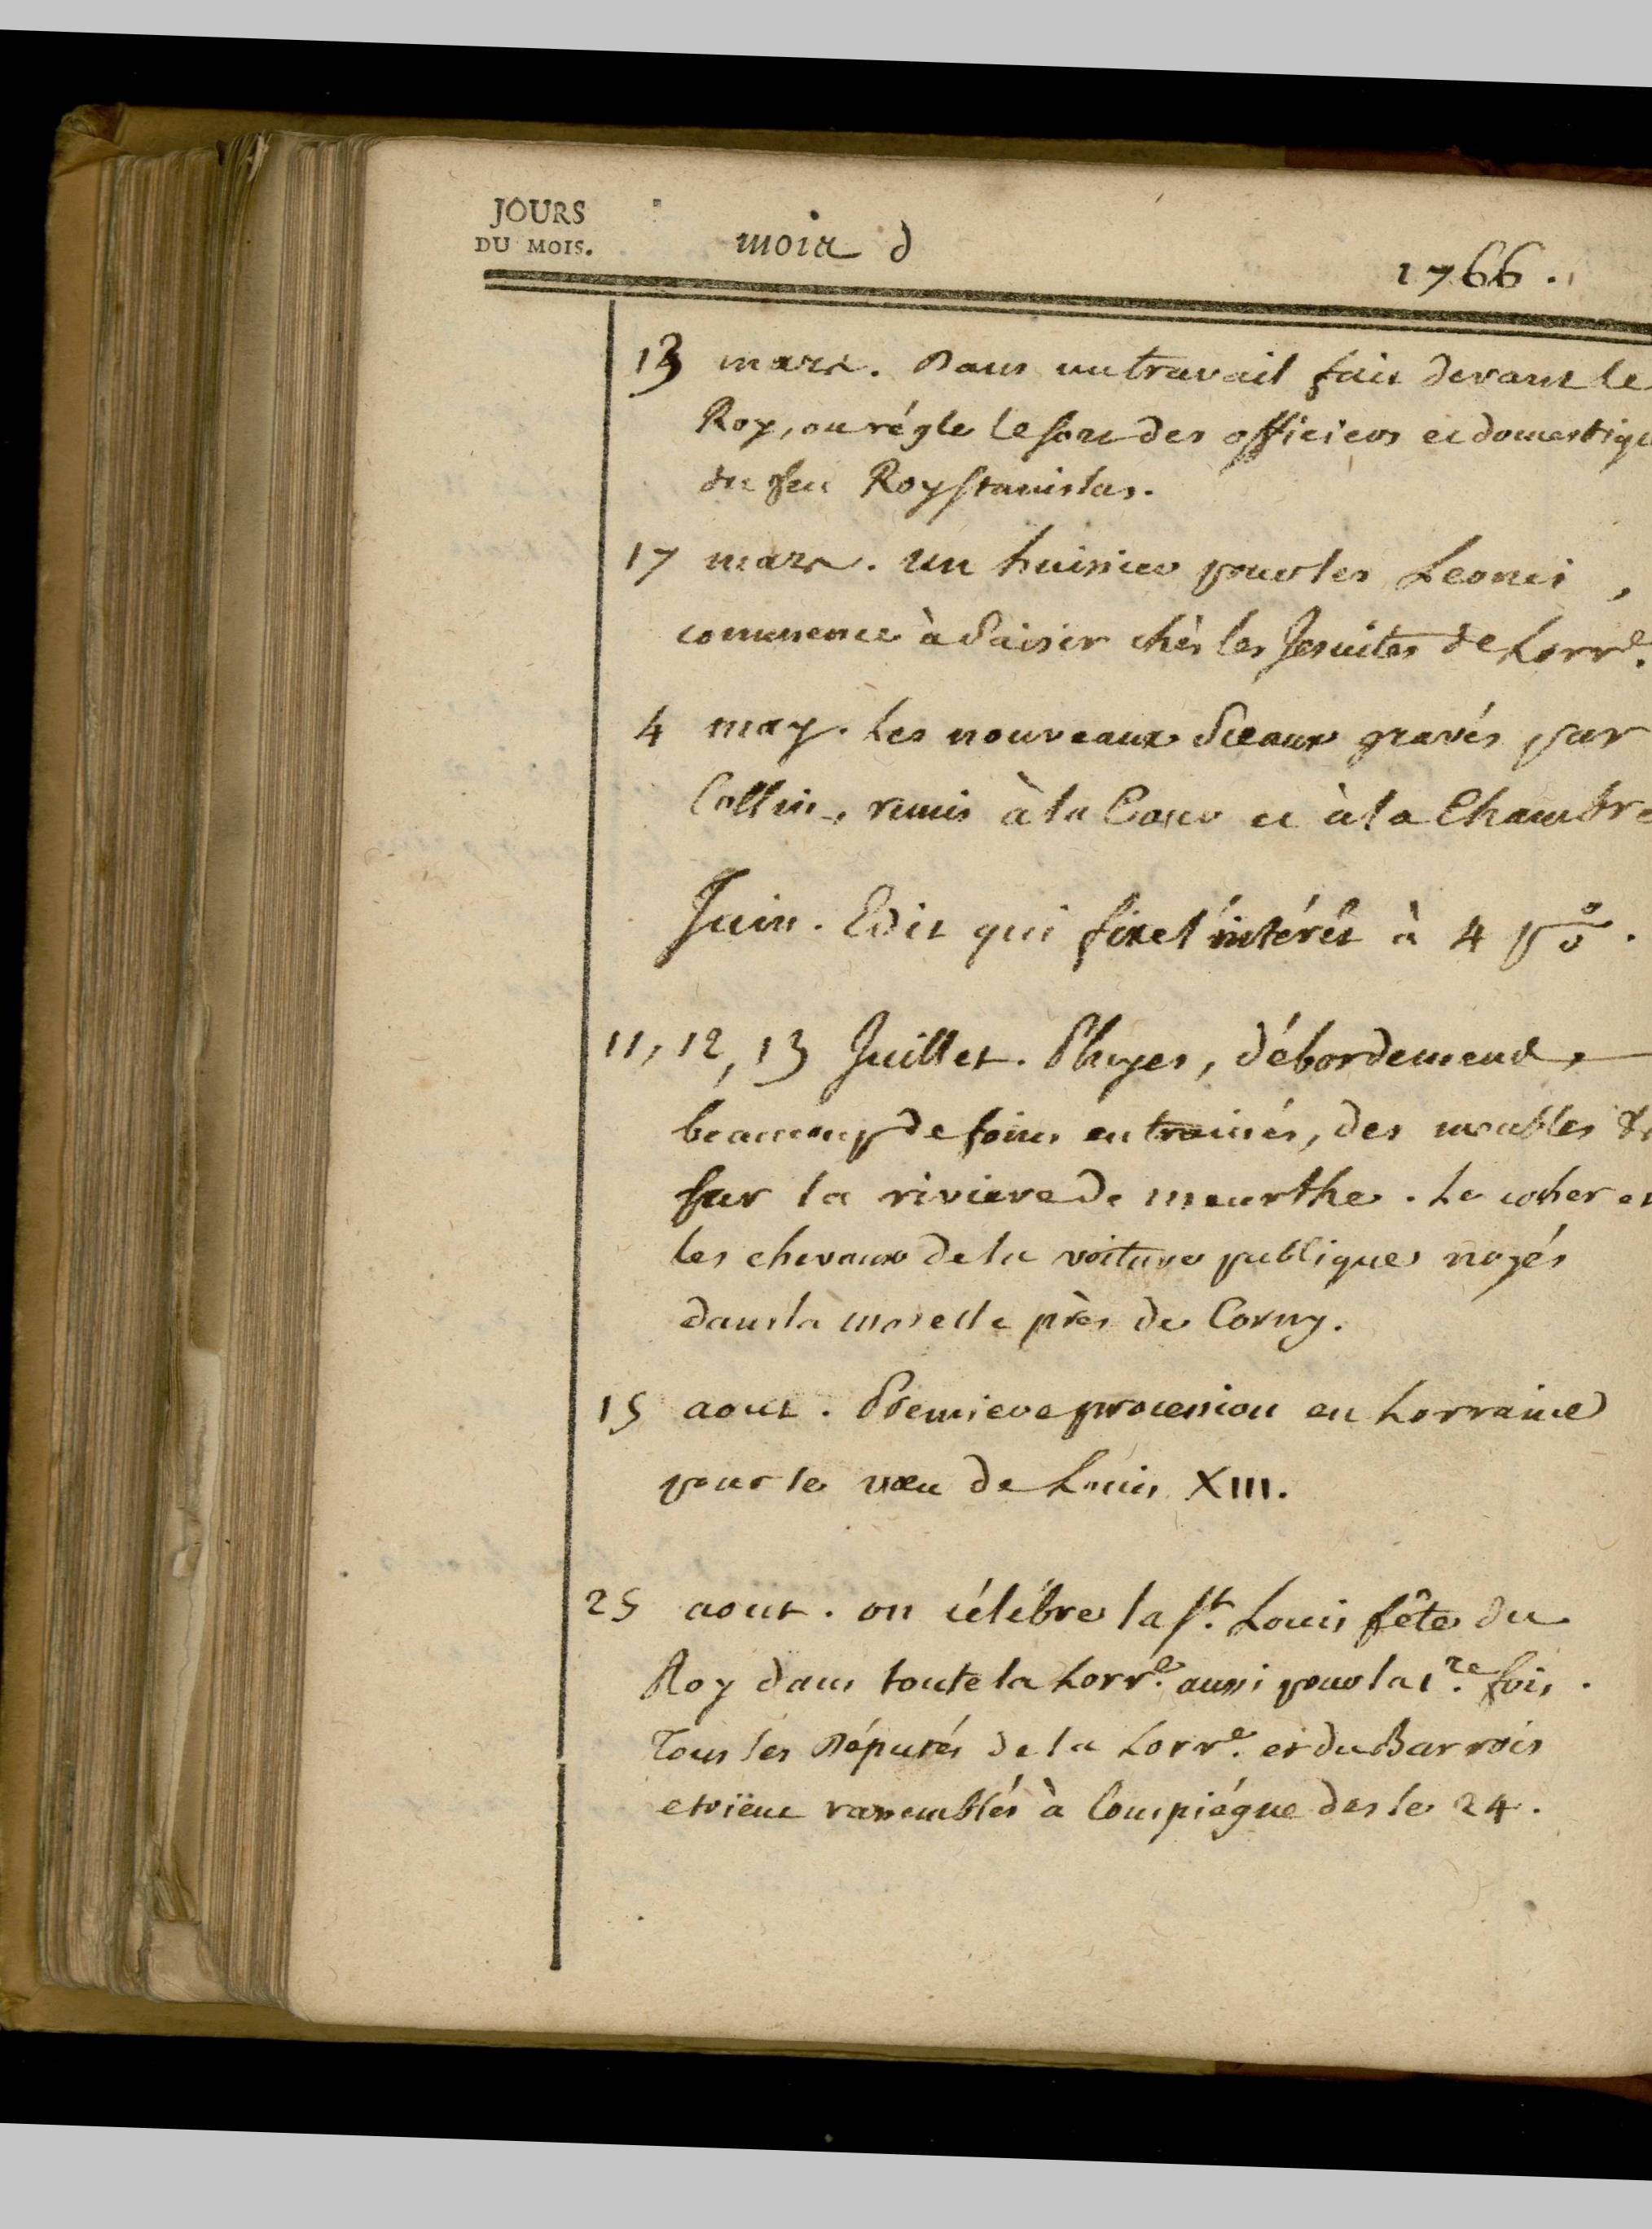 JOURS
DU MOIS.
mois d
1766.
13 mars. Dans un travail fait devant le
Roy, on régle le sort des officiers et domestiqu
du feu Roy Stanislas.
17 mars. un huissier pour les Leonci,
commence à saisir chès les Jesuites de Lorr.e
4 may. Les nouveaux Sceaux gravés par
Collin, remis à la Cour et à la Chambre
Juin. Edit qui fixe l'intérêt à 4 p%.
11, 12, 13 Juillet. Pluyes, débordement,
beaucoup de foins entrainés, des meubles &
sur la riviere de meurthe. Le cocher et
les chevaux de la voiture publique noyés
dans la moselle près de Corny.
15 aout. Premiere procession en Lorraine
pour le vœu de Louis XIII.
25 aout. on célébre la St. Louis fête du
Roy dans toute la Lorr.e aussi pour la 1.re fois.
Tous les Députés de la Lorr.e et du Barrois
etoïent rassemblés à Compiégne des le 24.